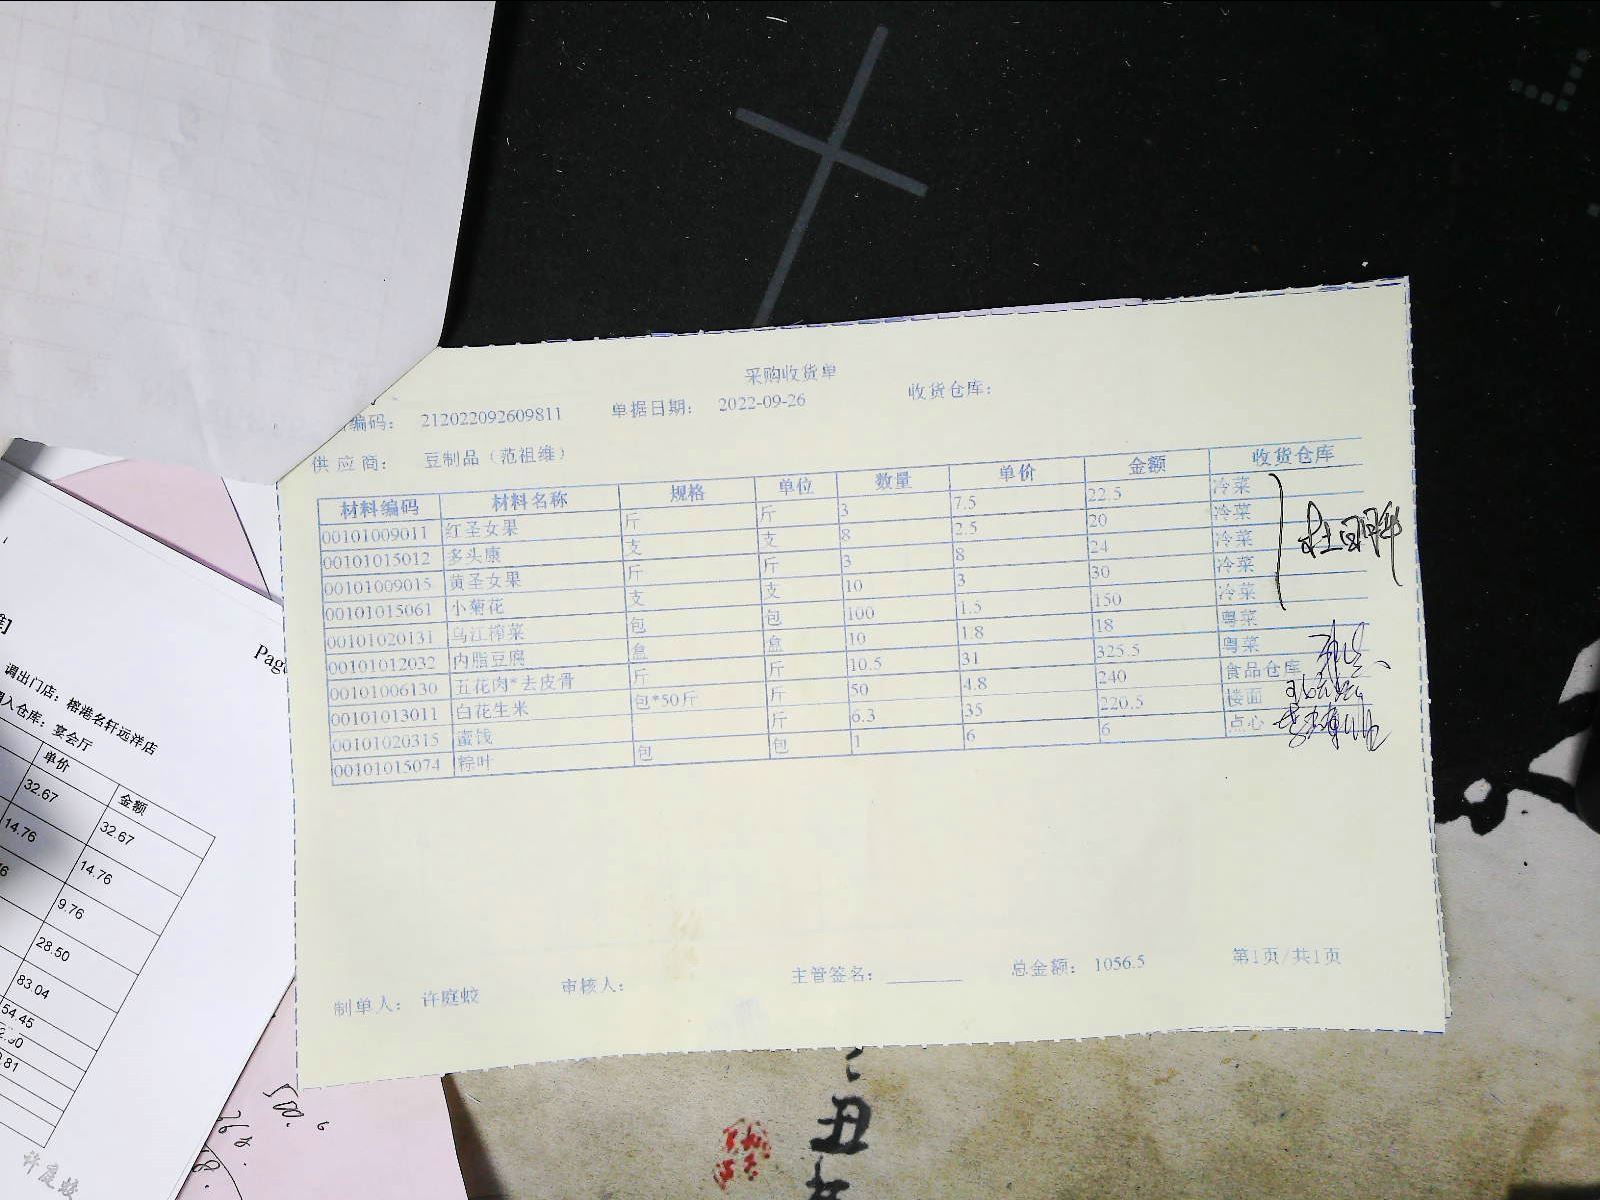 采购收货单
编码： 212022092609811 单据日期： 2022-09-26 收货仓库：
供应商： 豆制品（范祖维）
材料编码 材料名称 规格 单位 数量 单价 金额 收货仓库
00101009011 红圣女果 斤 斤 3 7.5 22.5 冷菜
00101015012 多头康 支 支 8 2.5 20 冷菜
00101009015 黄圣女果 斤 斤 3 8 24 冷菜
00101015061 小菊花 支 支 10 3 30 冷菜
00101020131 乌江榨菜 包 包 100 1.5 150 冷菜
00101012032 内脂豆腐 盒 盒 10 1.8 18 粤菜
00101006130 五花肉*去皮骨 斤 斤 10.5 31 325.5 粤菜
00101013011 白花生米 包*50斤 斤 50 4.8 240 食品仓库
00101020315 蜜饯 斤 6.3 35 220.5 楼面
00101015074 粽叶 包 包 1 6 6 点心
制单人： 许庭蛟 审核人： 主管签名： 总金额： 1056.5 第1页/共1页
调出门店：榕港名轩远洋店
入仓库：宴会厅
单价 金额
32.67 32.67
14.76 14.76
9.76
28.50
83.04
54.45
.81
许庭蛟
丑